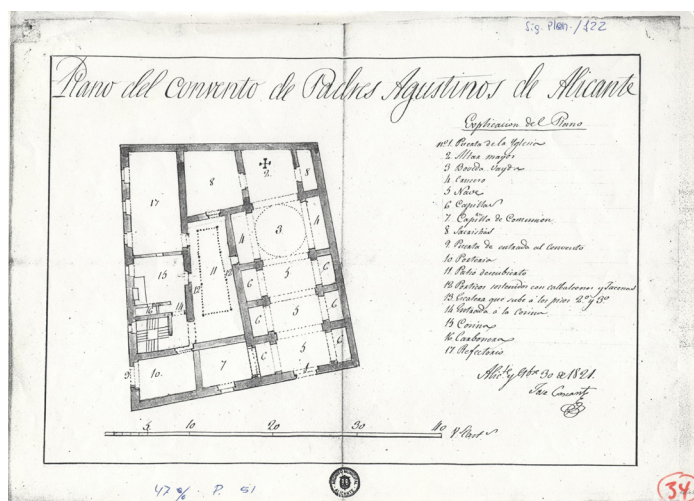 Sig. Plan./122
Plano del convento de Padres Agustinos de Alicante
Explicacion del Plano
nº 1. Puerta de la Yglesia
2 Altar mayor
3 Bobeda vayda
4 Crucero
5 Nave
6 Capillas
7 Capilla de Comunion
8 Sacristias
9 Puerta de entrada al convento
10 Porteria
11 Patio descubierto
12
13 Escalera que sube á los pisos 2º y 3º
14 Entrada á la cocina
15 Cocina
16 Carbonera
17 Refectorio
Alicte y 30 de 1821.
17
8
2
8
4
3
4
11
12
12
15
16
14
13
6
5
6
6
5
6
9
10
7
6
5
6
1
5
10
20
30
40
47 P. 51
34